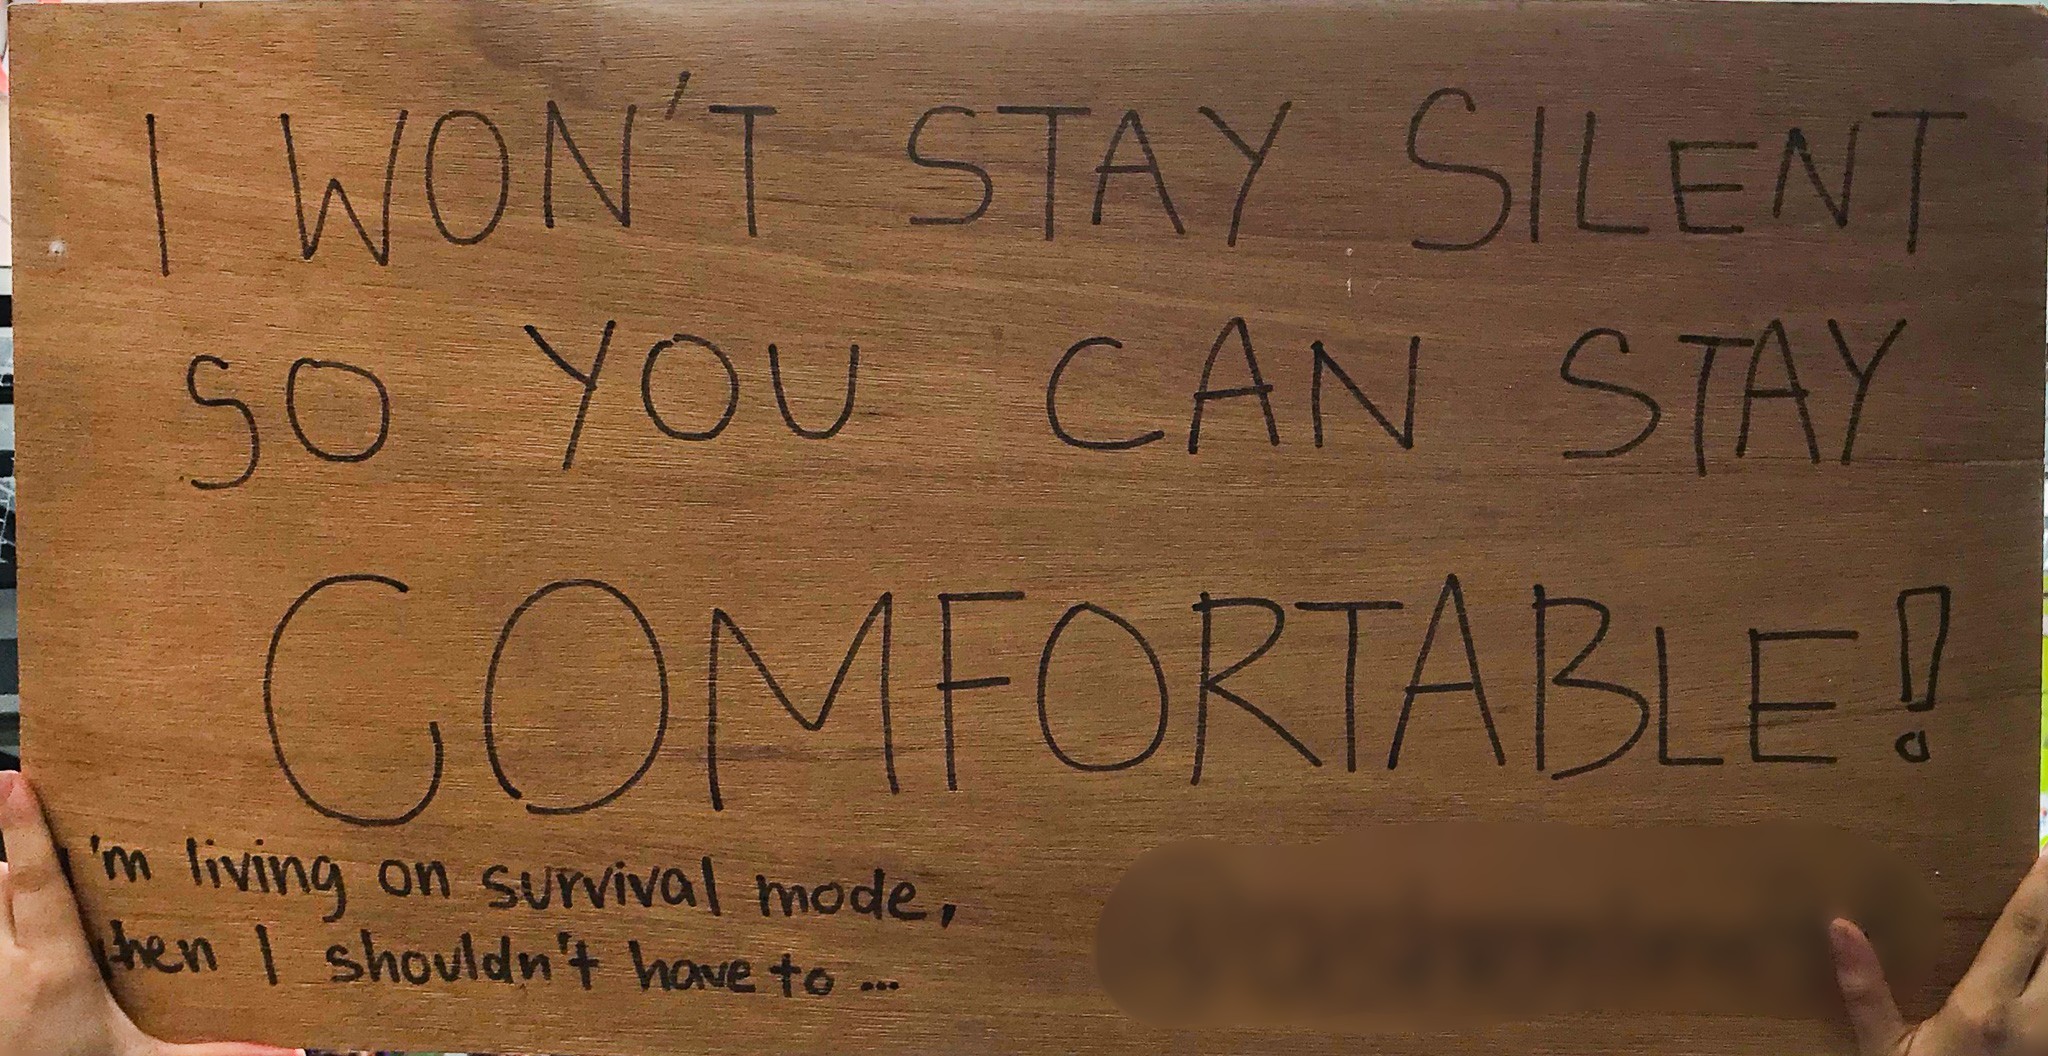 I WON'T STAY SILENT
SO YOU CAN STAY
COMFORTABLE!
'm living on survival mode,
hen I shouldn't have to...